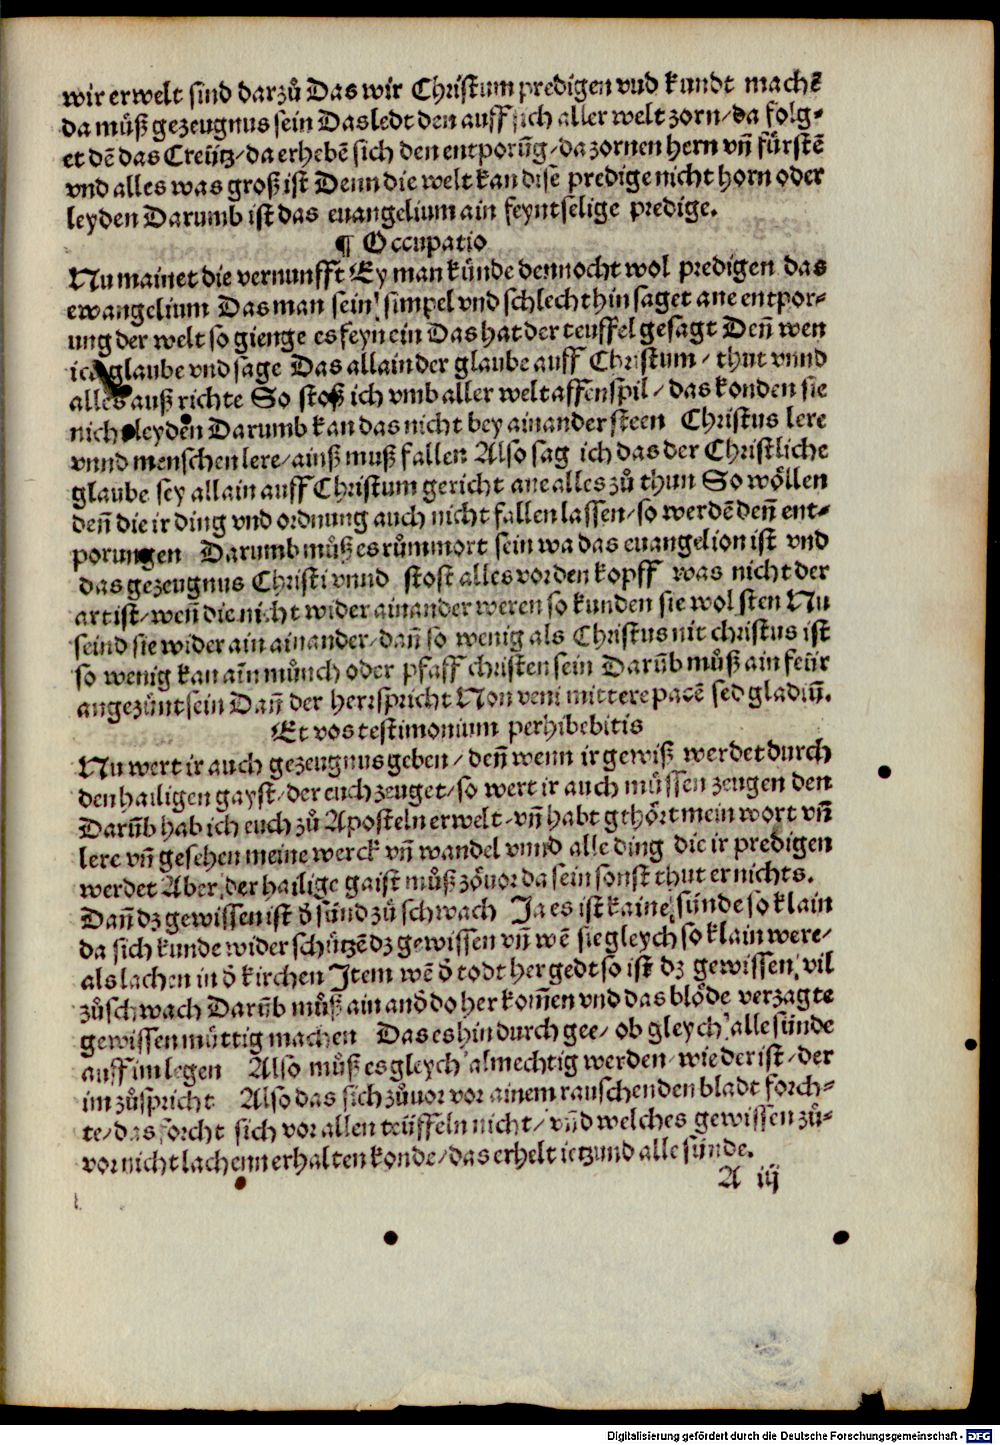 wir erwelt sind darzů Das wir Christum predigen vnd kundt machē
da můß gezeugnus sein Das ledt den auff sich aller welt zorn/da folg⸗
et dē das Creütz/da erhebē sich den entporūg/da zornen hern vn̄ fürstē
vnd alles was groß ist Denn die welt kan dise predige nicht horn oder
leyden Darumb ist das euangelium ain feyntselige predige.
¶ Occupatio
Nu mainet die vernunfft Ey man künde dennocht wol predigen das
ewangelium Das man sein simpel vnd schlecht hin saget ane entpor⸗
ung der welt so gienge es feyn ein Das hat der teuffel gesagt Den̄ wen
ich glaube vnd sage Das allain der glaube auff Christum/ thut vnnd
alles auß richte So stoß ich vmb aller welt affenspil/ das konden sie
nicht leyden Darumb kan das nicht bey ainander steen Christus lere
vnnd menschen lere/ainß muß fallen Also sag ich das der Christliche
glaube sey allain auff Christum gericht ane alles zů thun So wöllen
den̄ die ir ding vnd ordnung auch nicht fallen lassen/so werdē den̄ ent⸗
porungen Darumb můß es růmmort sein wa das euangelion ist vnd
das gezeugnus Christi vnnd stost alles vor den kopff was nicht der
art ist/wen̄ die nicht wider ainander weren so kunden sie wol sten Nu
seind sie wider ain ainander/dan̄ so wenig als Christus nit christus ist
so wenig kan ain münch oder pfaff christen sein Darūb můß ain feür
angezünt sein Dan̄ der herr spricht Non veni mittere pacē sed gladiū.
Et vos testimonium perhibebitis
Nu wert ir auch gezeugnus geben/ den̄ wenn ir gewiß werdet durch
den hailigen gayst/der euch zeuget/so wert ir auch müssen zeugen den
Darūb hab ich euch zů Aposteln erwelt/vn̄ habt gehört mein wort vn̄
lere vn̄ gesehen meine werck vn̄ wandel vnnd alle ding die ir predigen
werdet Aber der hailige gaist můß zůuor da sein sonst thut er nichts.
Dan̄ dz gewissen ist d̄ sünd zů schwach Ja es ist kaine sünde so klain
da sich kunde wider schützē dz gewissen vn̄ wē sie gleych so klain were/
als lachen in d̄ kirchen Item wē d̄ todt her gedt so ist dz gewissen vil
zůschwach Darūb můß ain and̄ do her kom̄en vnd das blöde verzagte
gewissen müttig machen Das es hin durch gee/ ob gleych alle sünde
auff im legen Also můß es gleych almechtig werden/ wie der ist/der
im zůspricht Also das sich zůuor vor ainem rauschenden bladt forch⸗
te/das forcht sich vor allen teüffeln nicht/ vn̄d welches gewissen zů⸗
vor nicht lachenn erhalten konde/das erhelt ietzund alle sünde.
A iij
Digitalisierung gefördert durch die Deutsche Forschungsgemeinschaft - DFG